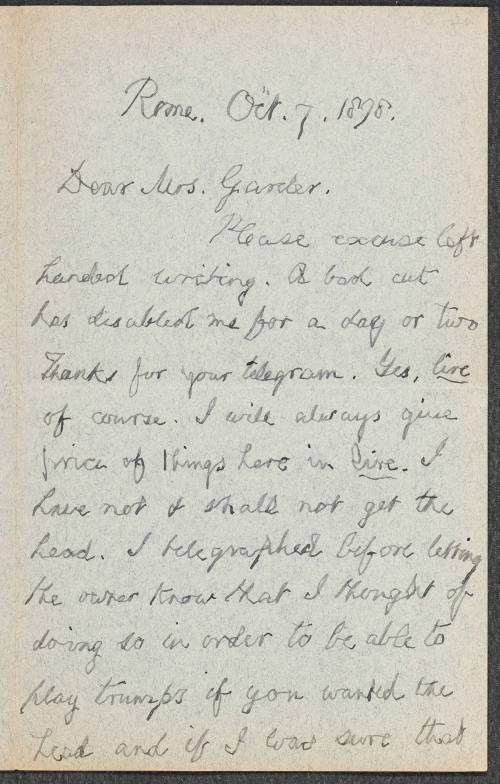 Rome. Oct. 7. 1898.
Dear Mrs. Garder.
Please excuse left
handed writing. A bad cut
has disabled me for a day or two
Thanks for your telegram. Yes, lire
of course. I will always give
price of things here in lire. I
have not & shall not get the
head. I telegraphed before letting
the owner know that I thought of
doing so in order to be able to
play trumps if you wanted the
head and if I was sure that